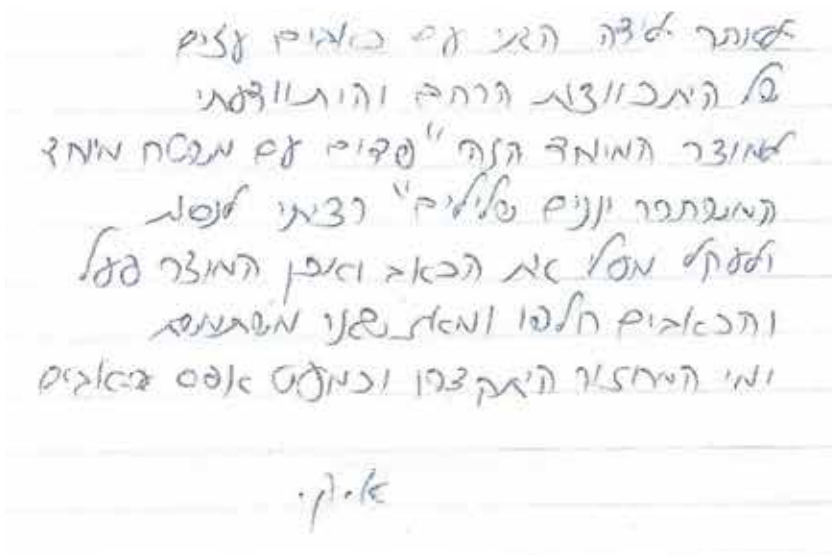 לאחר לידה הגני עם כאבים עזים
של היתכווצות הרחם והיתוודעתי
למוצר המיוחד הזה "פדים עם מפטח מיוחד
המשחרר יונים שליליים" רציתי לנסות
ולהקל מעלי את הכאב ואכן המוצר פעל
והכאבים חלפו ומאז שאני משתמשת
ימי המחזור היתקצרו וכמעט אפס כאבים
א.ק.